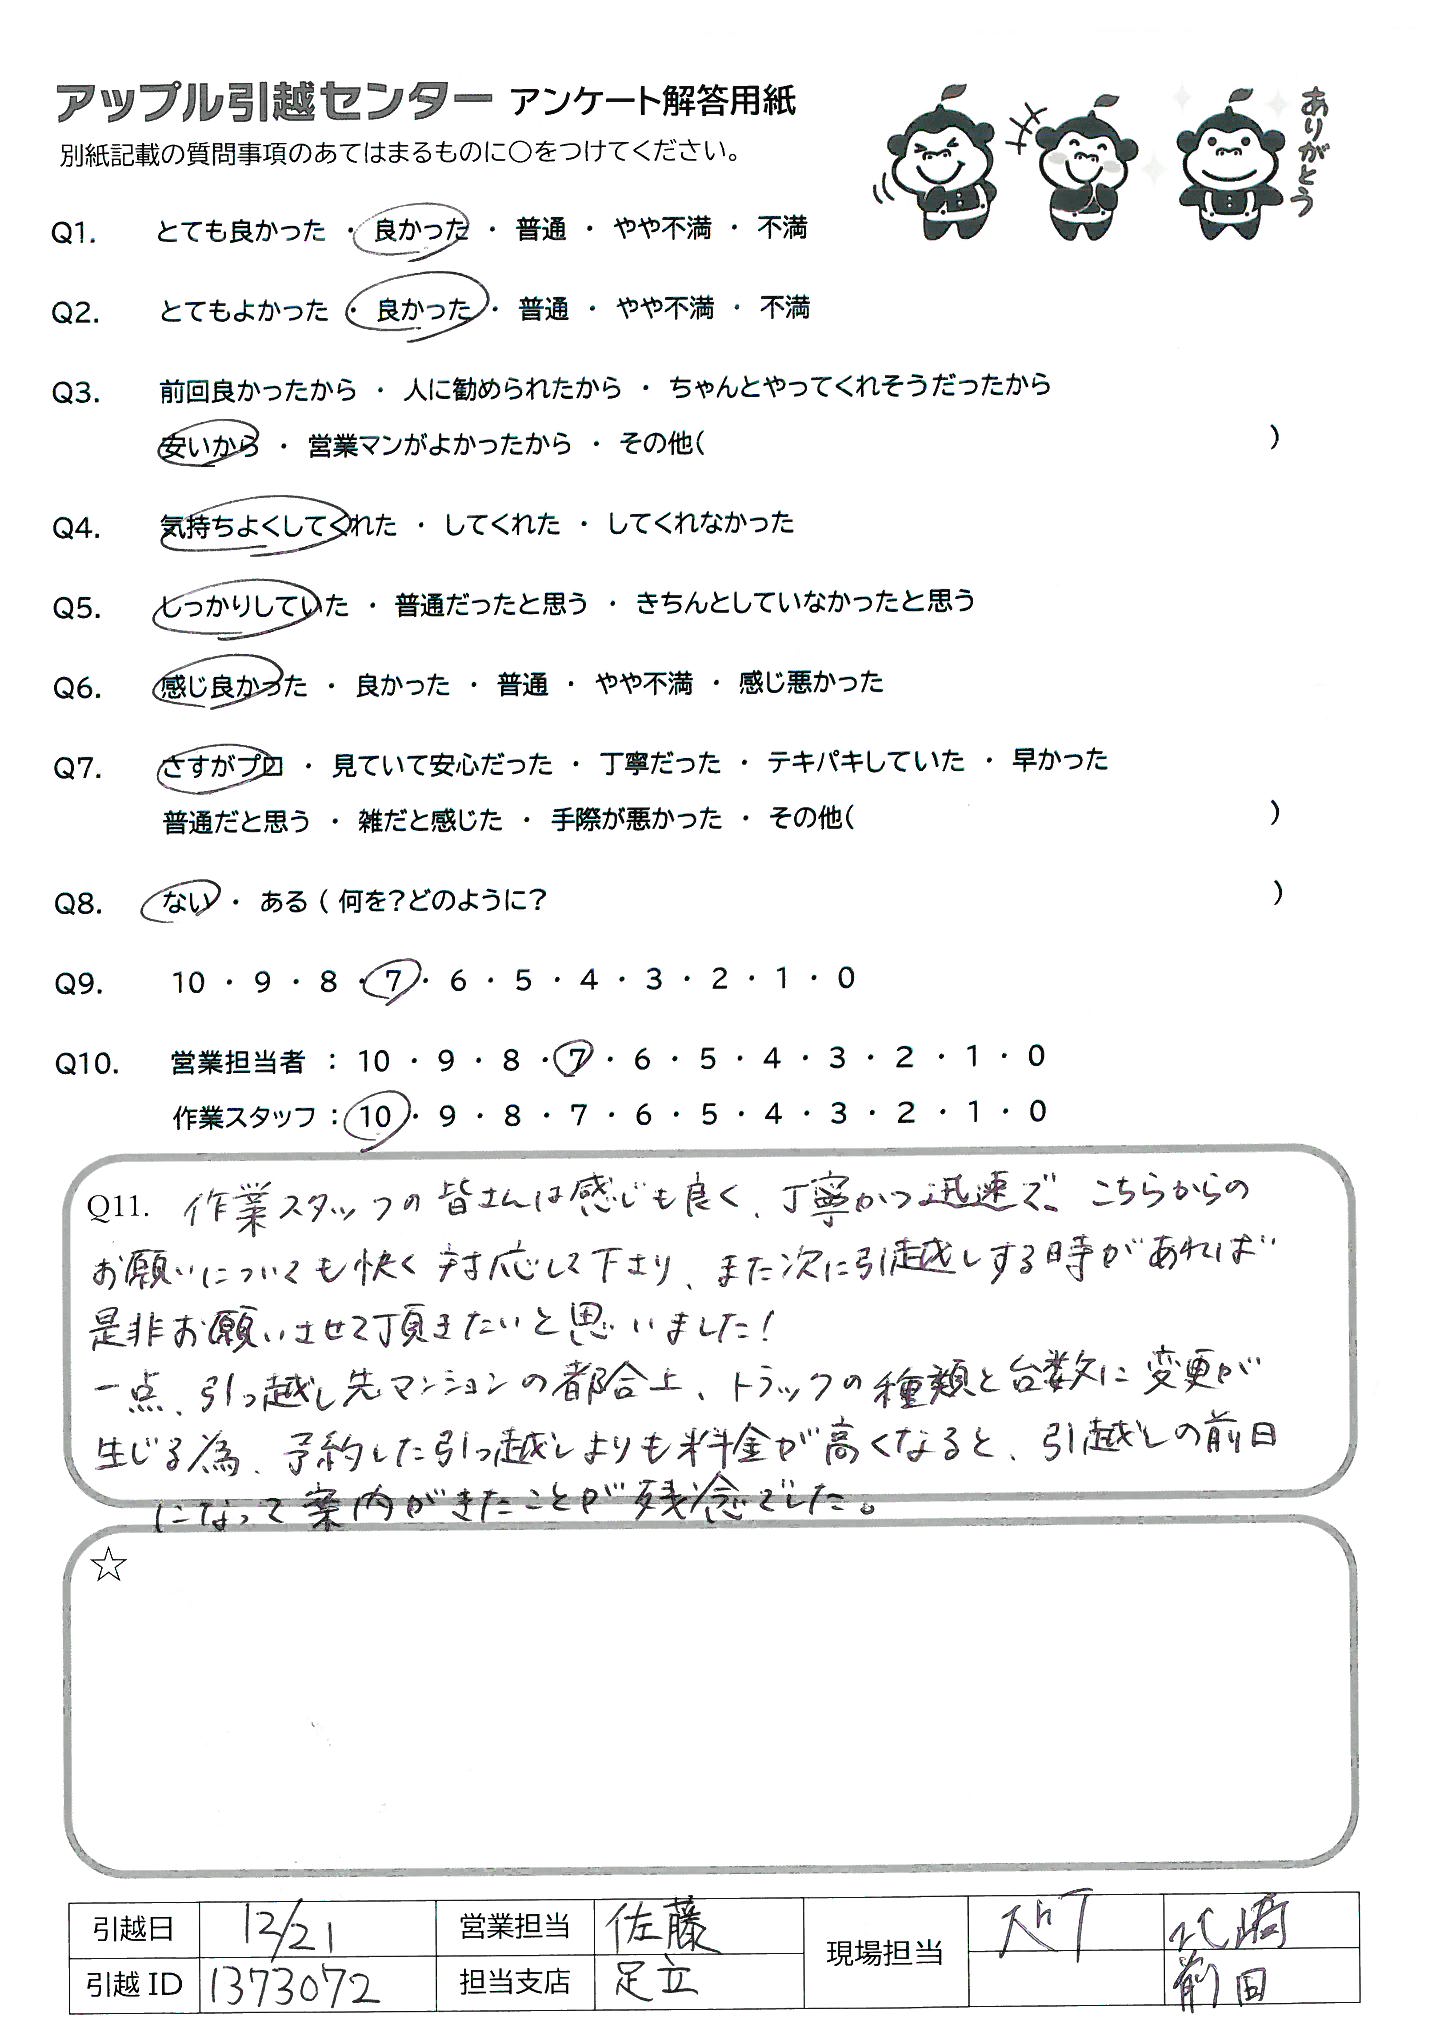 アップル引越センター アンケート解答用紙
別紙記載の質問事項のあてはまるものに○をつけてください。
ありがとう
Q1. とても良かった ・ 良かった ・ 普通 ・ やや不満 ・ 不満
Q2. とてもよかった ・ 良かった ・ 普通 ・ やや不満 ・ 不満
Q3. 前回良かったから ・ 人に勧められたから ・ ちゃんとやってくれそうだったから
安いから ・ 営業マンがよかったから ・ その他( )
Q4. 気持ちよくしてくれた ・ してくれた ・ してくれなかった
Q5. しっかりしていた ・ 普通だったと思う ・ きちんとしていなかったと思う
Q6. 感じ良かった ・ 良かった ・ 普通 ・ やや不満 ・ 感じ悪かった
Q7. さすがプロ ・ 見ていて安心だった ・ 丁寧だった ・ テキパキしていた ・ 早かった
普通だと思う ・ 雑だと感じた ・ 手際が悪かった ・ その他( )
Q8. ない ・ ある ( 何を?どのように? )
Q9. 10 ・ 9 ・ 8 ・ 7 ・ 6 ・ 5 ・ 4 ・ 3 ・ 2 ・ 1 ・ 0
Q10. 営業担当者 : 10 ・ 9 ・ 8 ・ 7 ・ 6 ・ 5 ・ 4 ・ 3 ・ 2 ・ 1 ・ 0
作業スタッフ : 10 ・ 9 ・ 8 ・ 7 ・ 6 ・ 5 ・ 4 ・ 3 ・ 2 ・ 1 ・ 0
Q11. 作業スタッフの皆さんは感じも良く、丁寧かつ迅速で、こちらからの
お願いについても快く対応して下さり、また次に引越しする時があれば
是非お願いさせて頂きたいと思いました!
一点、引っ越し先マンションの都合上、トラックの種類と台数に変更が
生じる為、予約した引っ越しよりも料金が高くなると、引越しの前日
になって案内がきたことが残念でした。
☆
引越日 12/21 営業担当 佐藤 現場担当
引越ID 1373072 担当支店 足立 前田